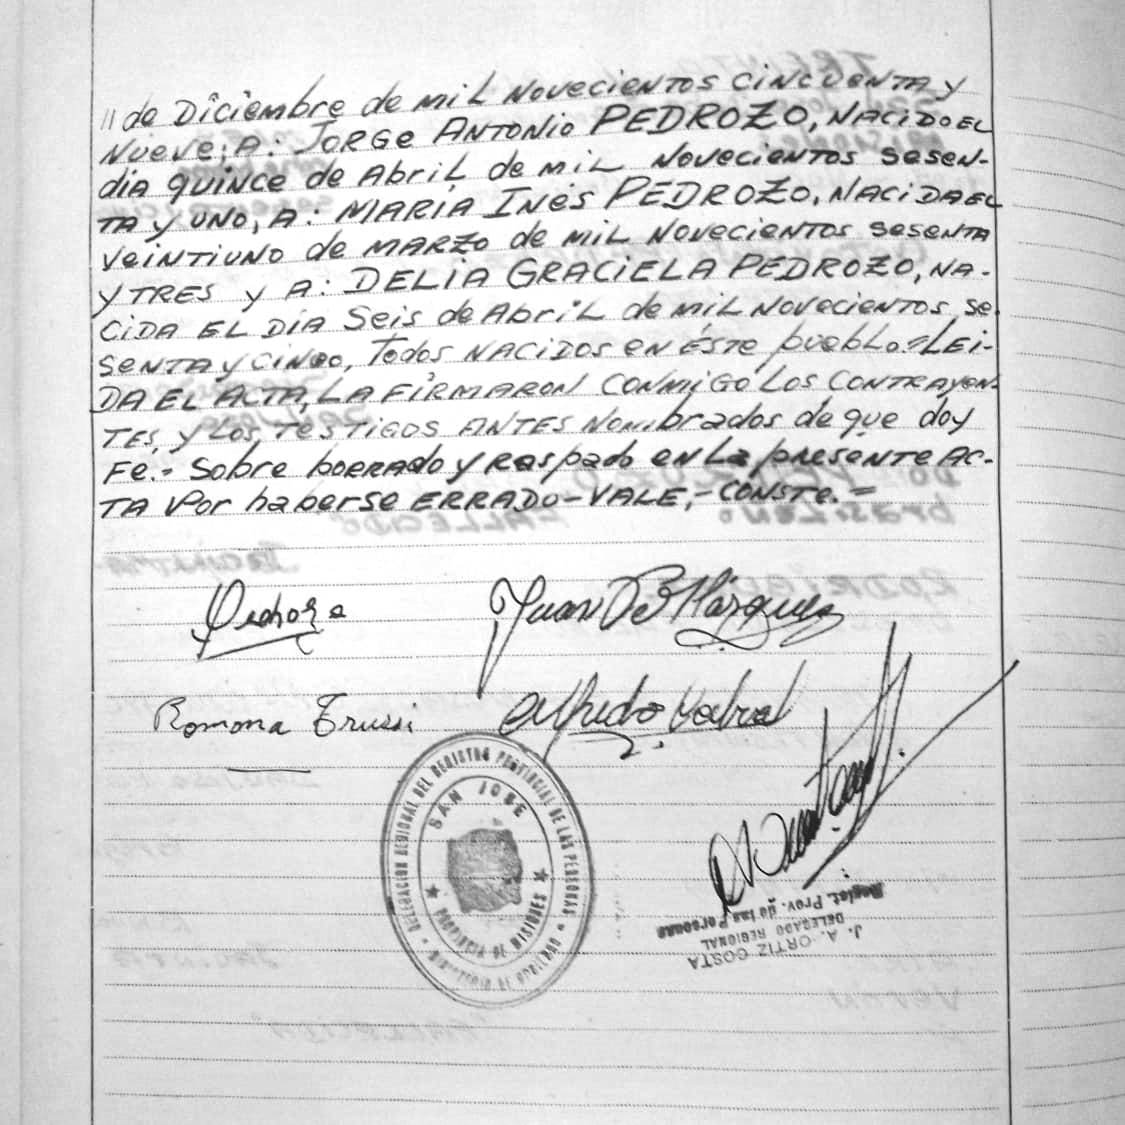 // de Diciembre de MIL NOVECIENTOS CINCUENTA y
NUEVE; A: JORGE ANTONIO PEDROZO, NACIDO EL
dia quince de Abril de MIL NOVECIENTOS SESEN-
TA y UNO, A: MARIA INÉS PEDROZO, NACIDA EL
VEINTIUNO de MARZO de MIL NOVECIENTOS SESENTA
y TRES y A: DELIA GRACIELA PEDROZO, NA-
CIDA EL DIA Seis de Abril de MIL NOVECIENTOS SE-
SENTA y CINCO, Todos NACIDOS en éste pueblo.= LEI-
DA EL ACTA, LA FIRMARON CONMIGO LOS CONTRAYEN-
TES y LOS TESTIGOS ANTES Nombrados de que doy
Fe.- Sobre borrado y raspado en La presente AC-
TA Por haberse ERRADO-VALE,-CONSTE.=
Juan B Márquez
Ramona
Alfredo
DELEGACION REGIONAL DEL REGISTRO PROVINCIAL DE LAS PERSONAS
SAN JOSE
PROVINCIA DE MISIONES
MINISTERIO DE GOBIERNO
J. A. ORTIZ COSTA
DELEGADO REGIONAL
Regist. Prov. de las Personas